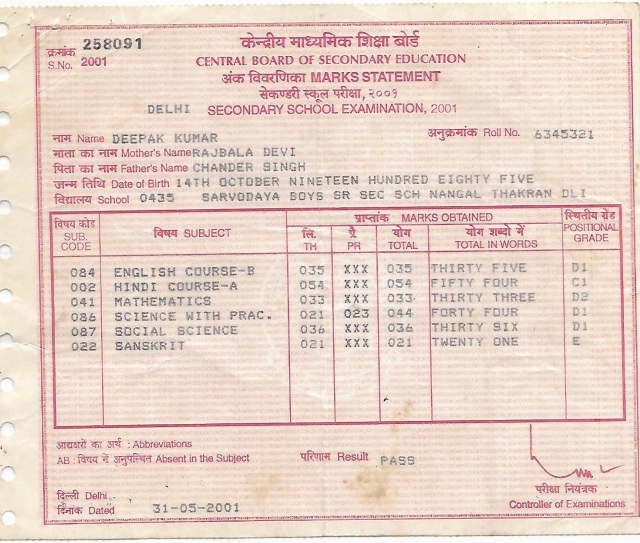 क्रमांक 258091
केन्द्रीय माध्यमिक शिक्षा बोर्ड
S.No. 2001
CENTRAL BOARD OF SECONDARY EDUCATION
अंक विवरणिका MARKS STATEMENT
सेकण्डरी स्कूल परीक्षा, २००१
DELHI SECONDARY SCHOOL EXAMINATION, 2001
नाम Name DEEPAK KUMAR अनुक्रमांक Roll No. 6345321
माता का नाम Mother's Name RAJBALA DEVI
पिता का नाम Father's Name CHANDER SINGH
जन्म तिथि Date of Birth 14TH OCTOBER NINETEEN HUNDRED EIGHTY FIVE
विद्यालय School 0435 SARVODAYA BOYS SR SEC SCH NANGAL THAKRAN DLI
विषय कोड SUB. CODE विषय SUBJECT प्राप्तांक MARKS OBTAINED स्थितीय ग्रेड POSITIONAL GRADE
लि. TH प्रै PR योग TOTAL योग शब्दो में TOTAL IN WORDS
084 ENGLISH COURSE-B 035 XXX 035 THIRTY FIVE D1
002 HINDI COURSE-A 054 XXX 054 FIFTY FOUR C1
041 MATHEMATICS 033 XXX 033 THIRTY THREE D2
086 SCIENCE WITH PRAC. 021 023 044 FORTY FOUR D1
087 SOCIAL SCIENCE 036 XXX 036 THIRTY SIX D1
022 SANSKRIT 021 XXX 021 TWENTY ONE E
आद्यक्षरो का अर्थ : Abbreviations
AB : विषय में अनुपस्थित Absent in the Subject परिणाम Result PASS
दिल्ली Delhi
दिनांक Dated 31-05-2001
परीक्षा नियंत्रक
Controller of Examinations